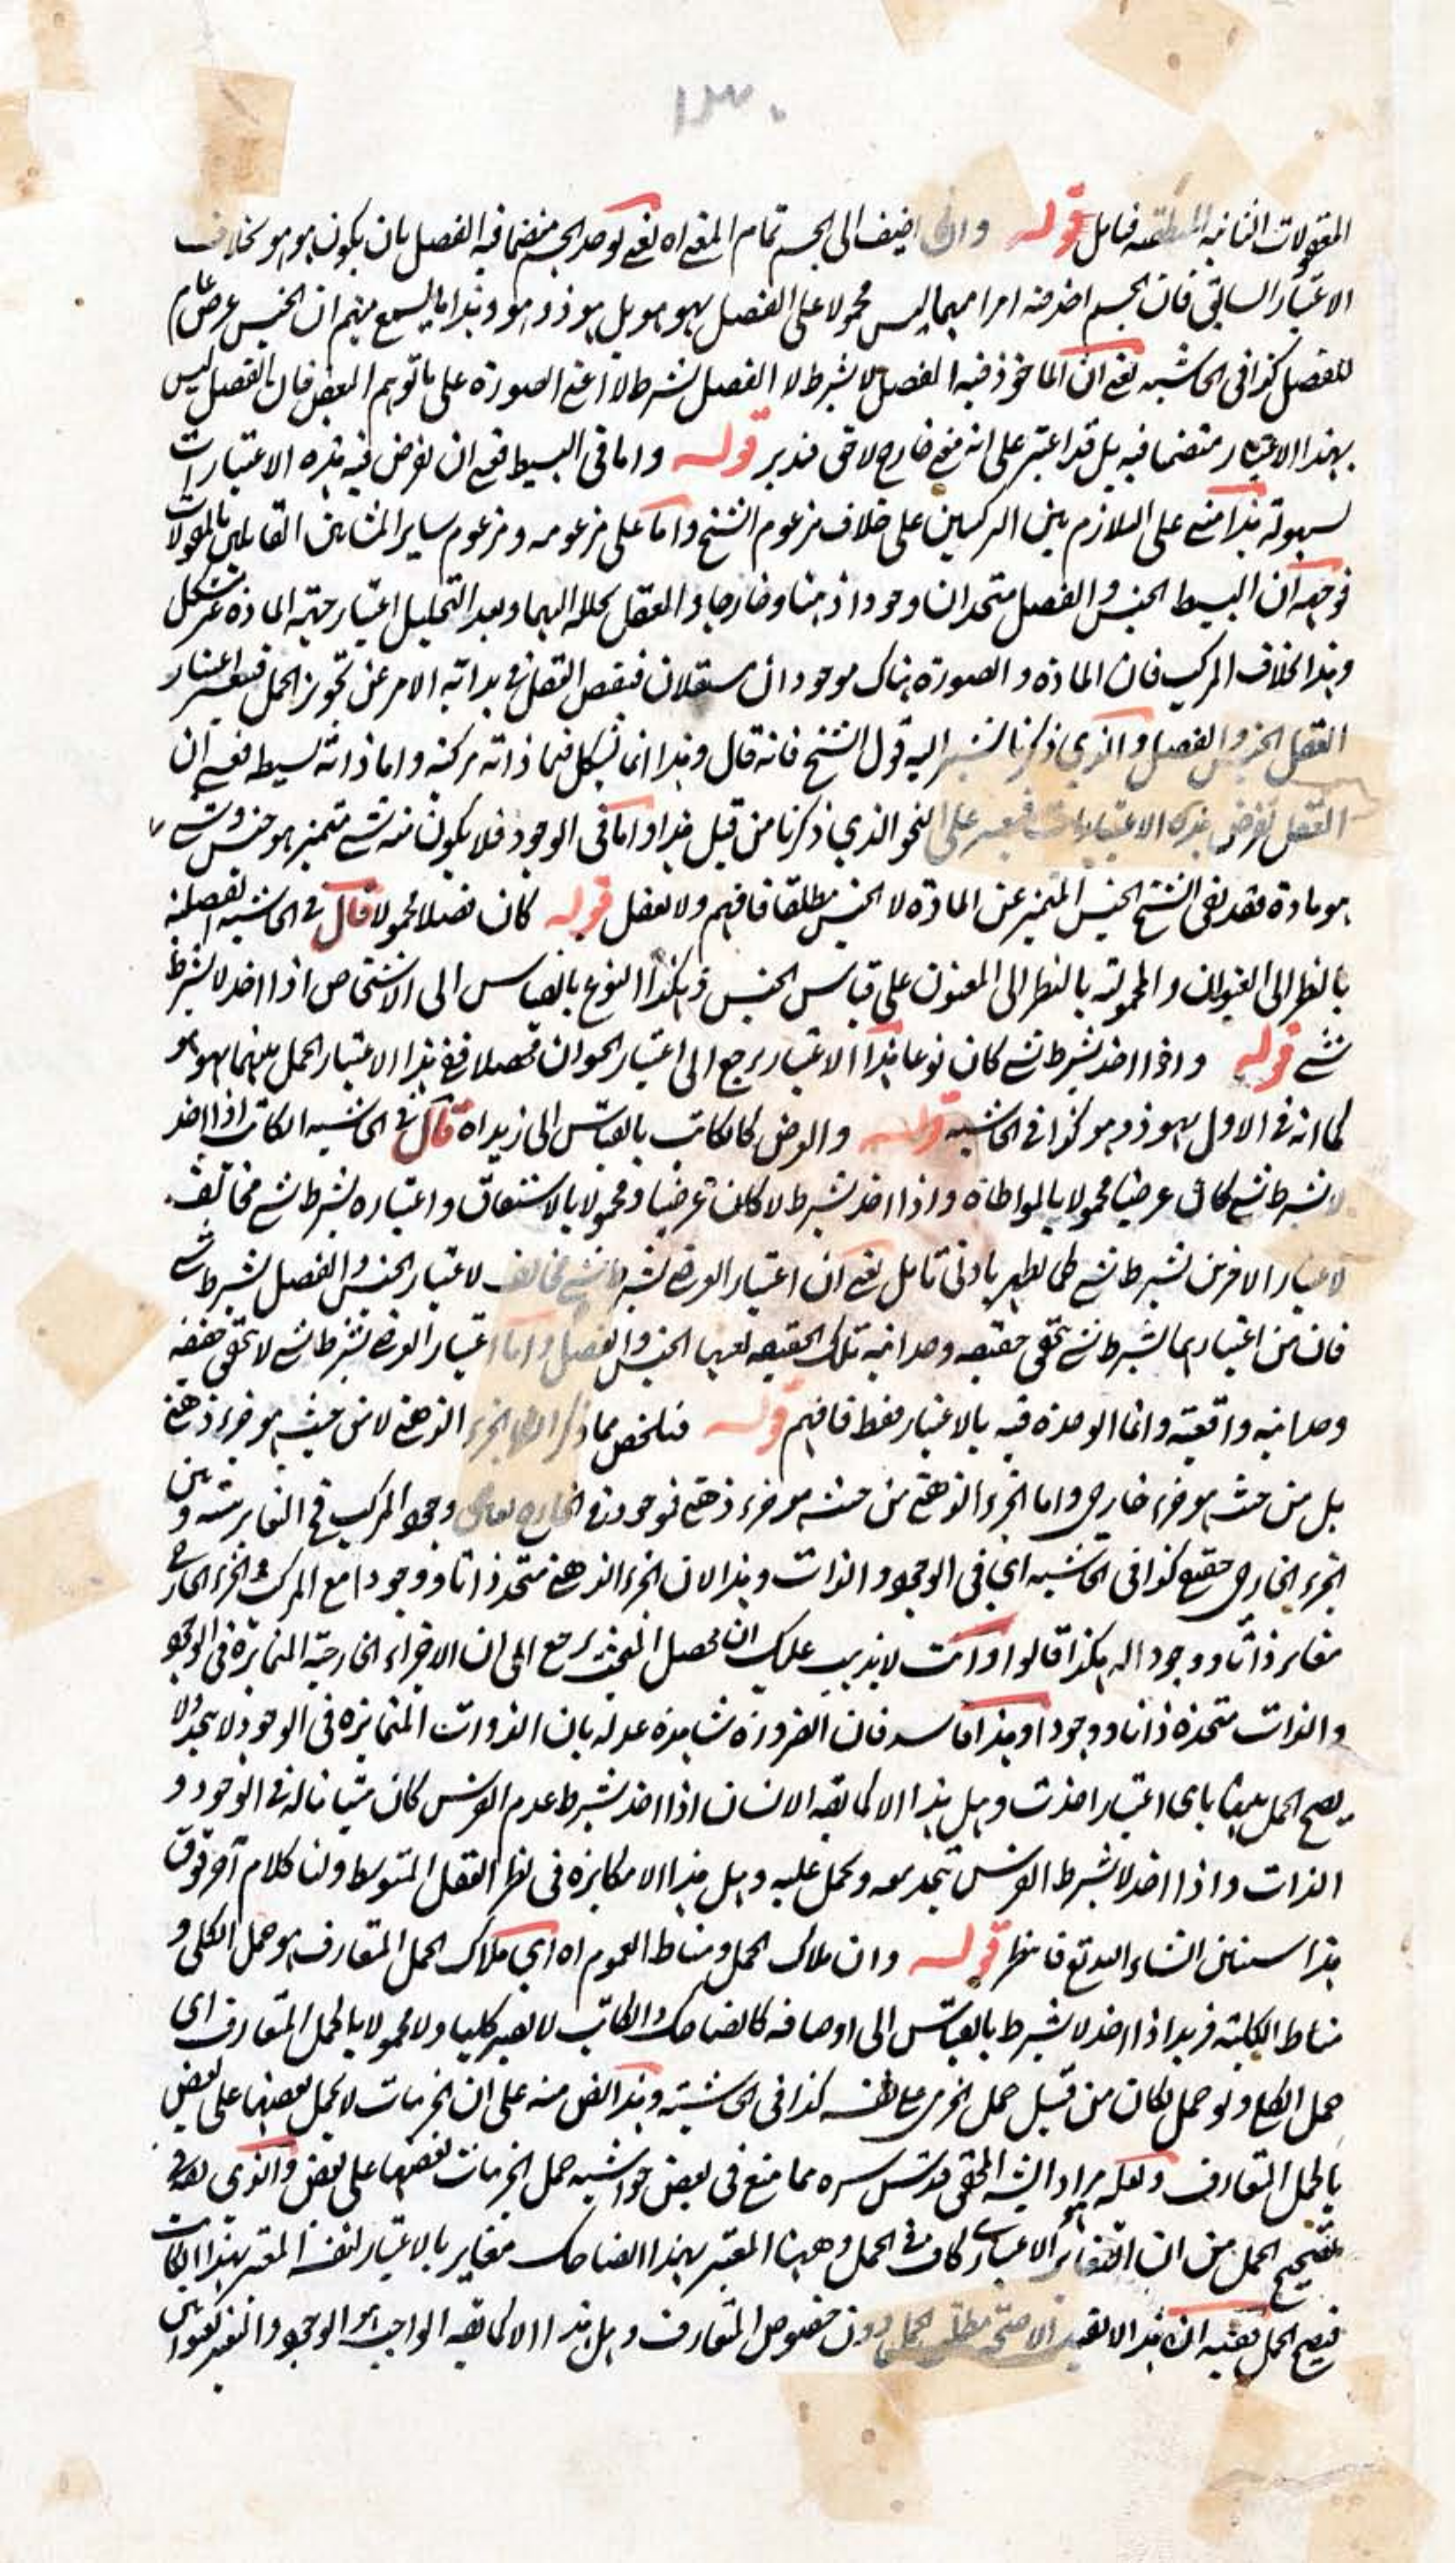 ١٣٠
المعقولات الثانية المنطقية فتامل قوله وان اضيف الى الجسم تمام المعنى اه يعنى يوخذ الجسم متضمنا فيه الفصل بان يكون هو هو بخلاف
الاعتبار السابق فان الجسم اخذ منه امرا مبهما ليس محمولا على الفصل بهو هو بل بهو ذو هو وهذا ما يسمع منهم ان الجنس عرض عام
للفصل كذا فى الحاشيه يعنى ان الماخوذ فيه الفصل لا بشرط لا الفصل بشرط لا اعنى الصورة على ما توهم البعض فان الفصل ليس
بهذا الاعتبار متضمنا فيه بل قد اعتبر على انه معنى خارج لاحق فتدبر قوله واما فى البسيط فعسى ان يفرض فيه هذه الاعتبارات
لسهولة هذا مبنى على التلازم بين التركيبين على خلاف مزعوم الشيخ واما على مزعومه ومزعوم ساير المشائين القائلين بالمقولات
فوجهه ان البسيط الجنس والفصل متحدان وجودا ذهنا وخارجا والعقل يحلله اليهما وبعد التحليل اعتبار حيثية المادة عسر مشكل
وهذا بخلاف المركب فان المادة والصورة هناك موجودان مستقلان فينقص العقل فى بداية الامر عن تجويز الحمل فيعسر اعتبار
العقل الجنس والفصل والذى ذكرنا يشير اليه قول الشيخ فانه قال وهذا انما يشكل فيما ذاته مركبة واما ذاته بسيطه فعسى ان
العقل يفرض هذه الاعتبارات فيعسر على النحو الذي ذكرنا من قبل هذا واما فى الوجود فلا يكون منه شئ متميز هو جنس وشئ
هو مادة فقد نفى الشيخ الجنس المتميز عن المادة لا الجنس مطلقا فافهم ولا تغفل قوله كان فصلا محمولا قال فى الحاشيه الفصلية
بالنظر الى العنوان والمحمولية بالنظر الى المعنون على قياس الجنس وهكذا النوع بالقياس الى الاشخاص اذا اخذ لا بشرط
شئ قوله واذا اخذ بشرط شئ كان نوعا هذا الاعتبار يرجع الى اعتبار الحيوان محصلا ففى هذا الاعتبار الحمل بينهما بهو هو
كما انه فى الاول بهو ذو هو كذا فى الحاشيه قوله والعرض كالكاتب بالقياس الى زيد اه قال فى الحاشيه الكاتب اذا اخذ
لا بشرط شئ كان عرضيا محمولا بالمواطاة واذا اخذ بشرط لا كان عرضا ومحمولا بالاشتقاق واعتباره بشرط شئ مخالف
لاعتبار الاخرين بشرط شئ كما يظهر بادنى تامل يعنى ان اعتبار العرض بشرط شئ مخالف لاعتبار الجنس والفصل بشرط شئ
فان من اعتبارهما بشرط شئ تحقق حقيقه وحدانيه تلك الحقيقه بعينها الجنس والفصل واما اعتبار العرض بشرط شئ لا يحقق حقيقه
وحدانيه واقعية وانما الوحدة فيه بالاعتبار فقط فافهم قوله فتلخص مما ذكر الجزء الذهنى لا من حيث هو جزء ذهنى
بل من حيث هو جزء خارجى واما الجزء الذهنى من حيث هو جزء ذهنى فوجوده فى الخارج وجود المركب فى التغاير بينه وبين
الجزء الخارجى حقيقى كذا فى الحاشيه اى فى الوجود والذات وهذا لان الجزء الذهنى متحد ذاتا ووجودا مع المركب والجزء الخارجى
مغاير ذاتا ووجودا له هكذا قالوا وانت لا يذهب عليك ان محصل البحث يرجع الى ان الاجزاء الخارجية المتمايزة فى الوجود
والذات متحدة ذاتا ووجودا وهذا فاسد فان الضرورة شاهدة عدلة بان الذوات المتمايزة فى الوجود لا يتحد ولا
يصح الحمل بينها باى اعتبار اخذت وهل هذا الا كما يقه الانسان اذا اخذ بشرط عدم الفرس كان متباينا له فى الوجود و
الذات واذا اخذ لا بشرط الفرس يتحد معه ويحمل عليه وهل هذا الا مكابرة فى نظر العقل المتوسط ولنا كلام آخر فوق
هذا سنبين انشاء الله تع فانتظر قوله وان ملاك الحمل ومناط العموم اه اى ملاك الحمل المتعارف هو حمل الكلى و
مناط الكلية فزيد اذا اخذ لا بشرط بالقياس الى اوصافه كالضاحك والكاتب لا يصير كليا ولا محمولا بالحمل المتعارف اى
حمل الكلى ولو حمل لكان من قبيل حمل الجزئى على نفسه كذا فى الحاشية وهذا نص منه على ان الجزئيات لا يحمل بعضها على بعض
بالحمل المتعارف ولعله مراد الشيخ المحقق قدس سره مما منع فى بعض حواشيه حمل الجزئيات بعضها على بعض والذى يقه فى
تصحيح الحمل من ان التغاير الاعتبارى كاف فى الحمل وههنا المعتبر بهذا الضاحك مغاير بالاعتبار لنفسه المعتبر بهذا الكاتب
فيصح الحمل ففيه ان هذا لا يفيد الا صحة مطلق الحمل دون خصوص المتعارف وهل هذا الا كما يقه الواجب هو الوجود